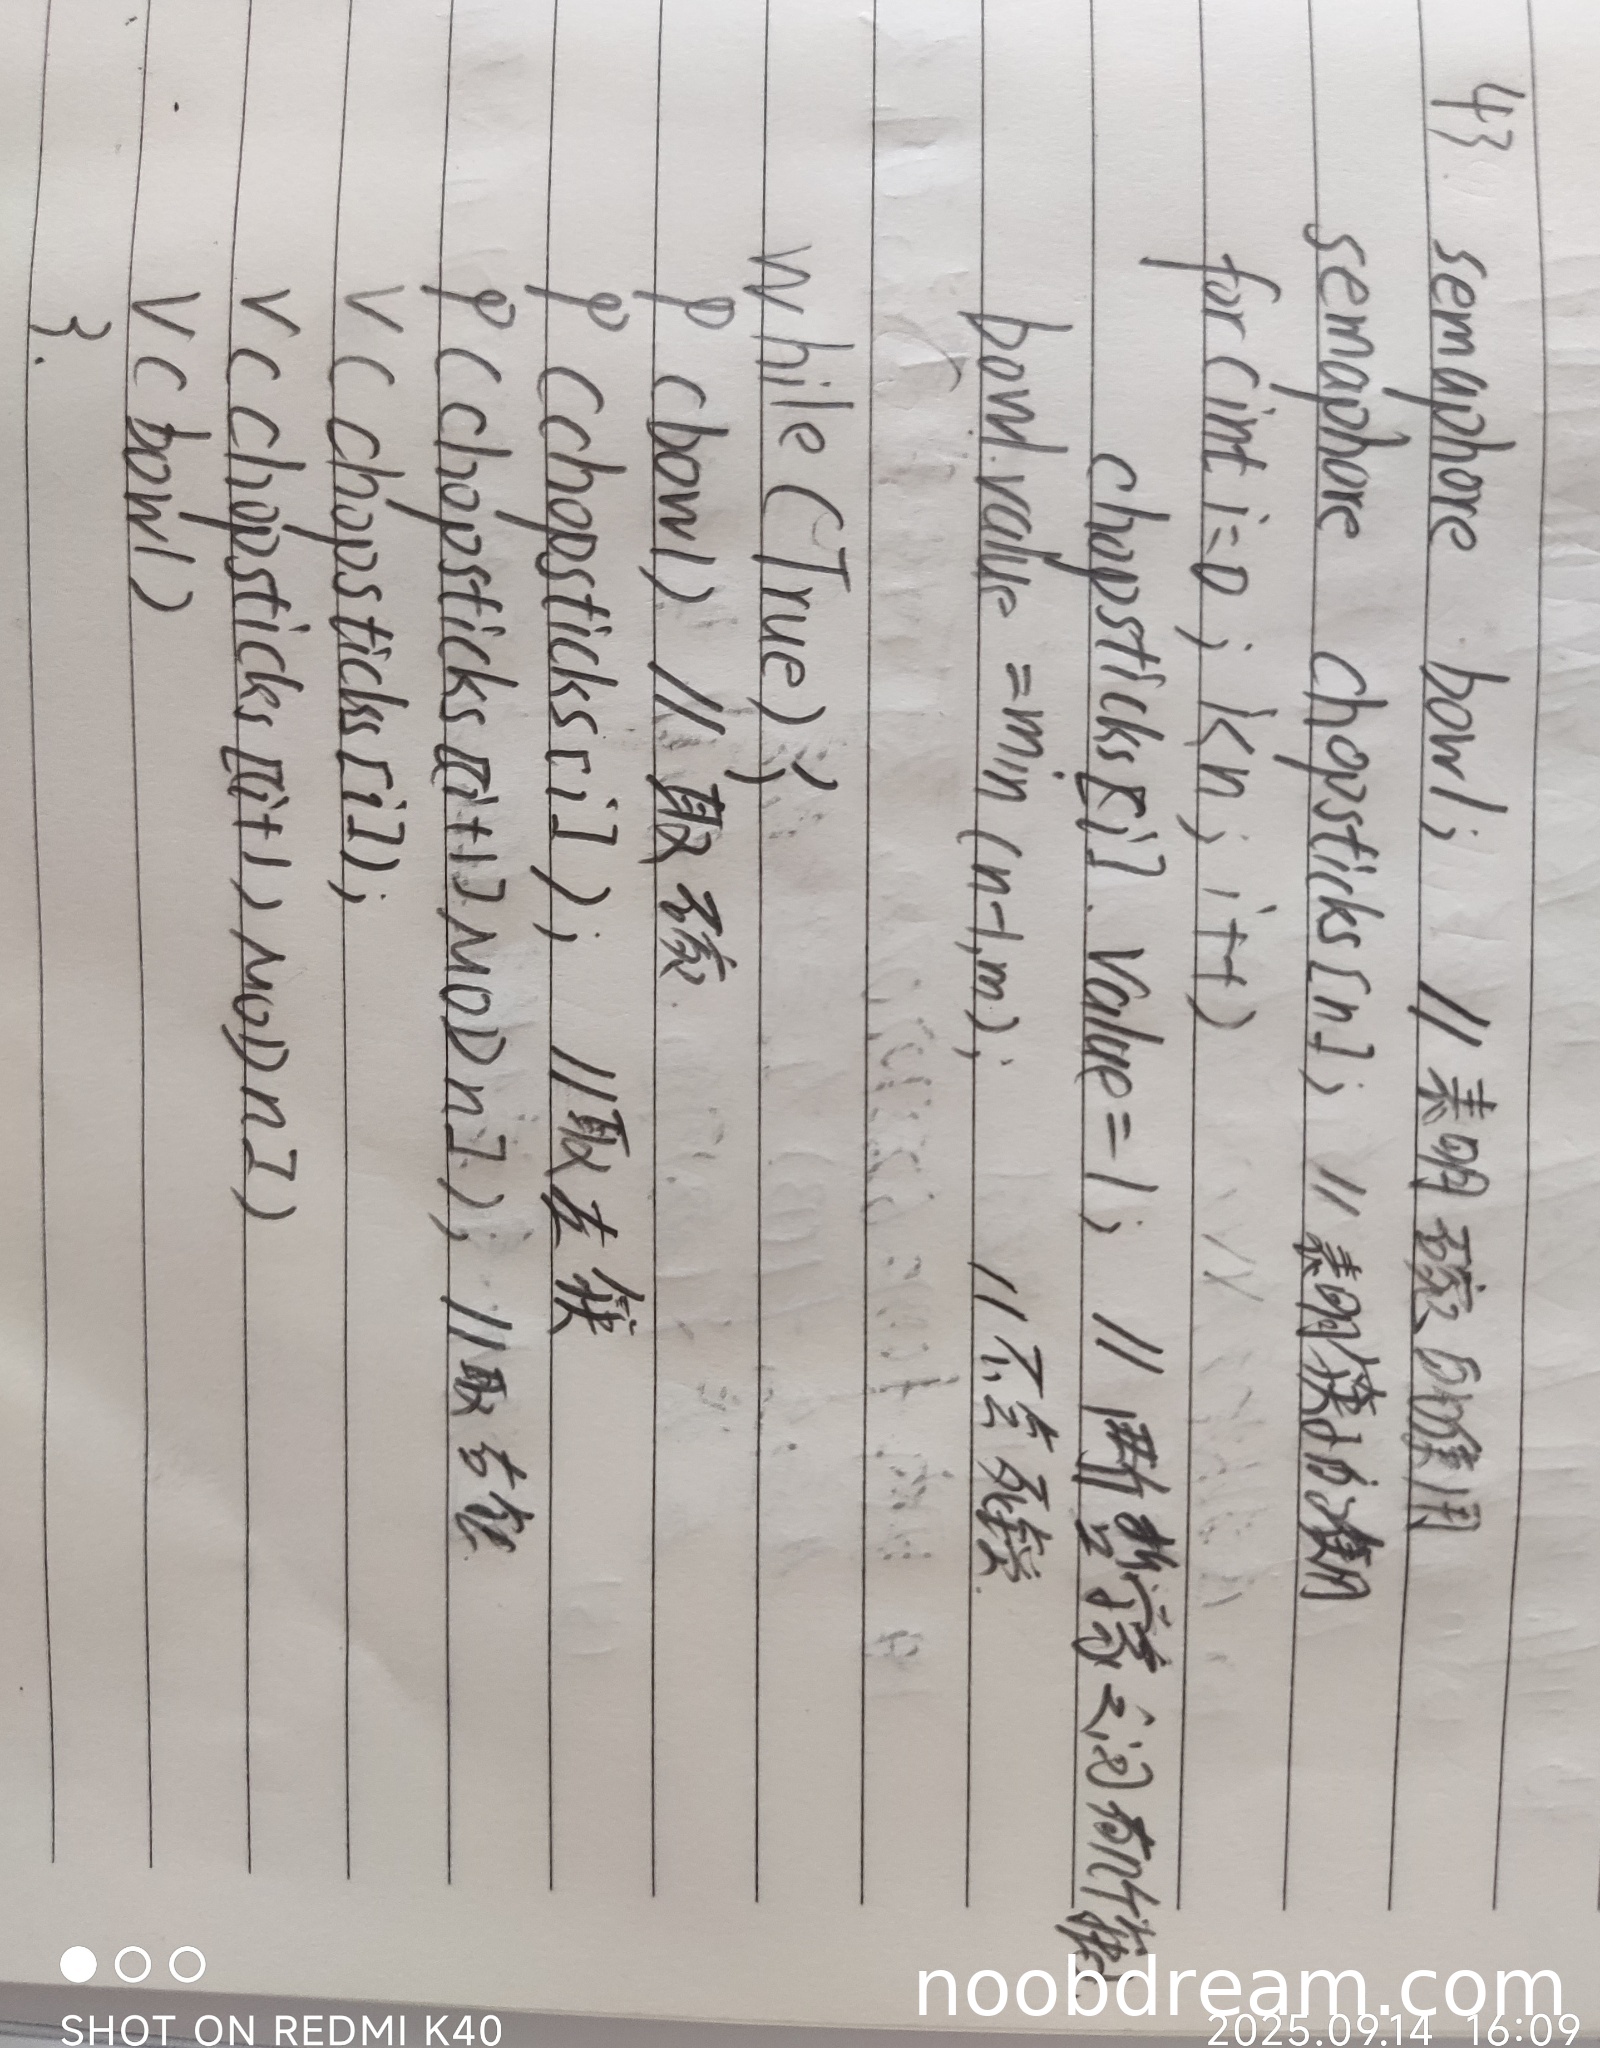 43 semaphore bowl; // 表明碗的使用
semaphore chopsticks[n]; // 表明筷子的使用
for(int i=0; i<n; i++)
chopsticks[i].value=1; // 两 哲学家之间有n个筷
bowl.value=min(n-1,m); // 不会死锁.
while(True){
P(bowl) // 取碗.
P(chopsticks[i]); //取左筷
P(chopsticks[(i+1)MODn]); //取右筷
V(chopsticks[i]);
V(chopsticks[(i+1)MODn])
V(bowl)
}.
noobdream.com
SHOT ON REDMI K40
2025.09.14 16:09